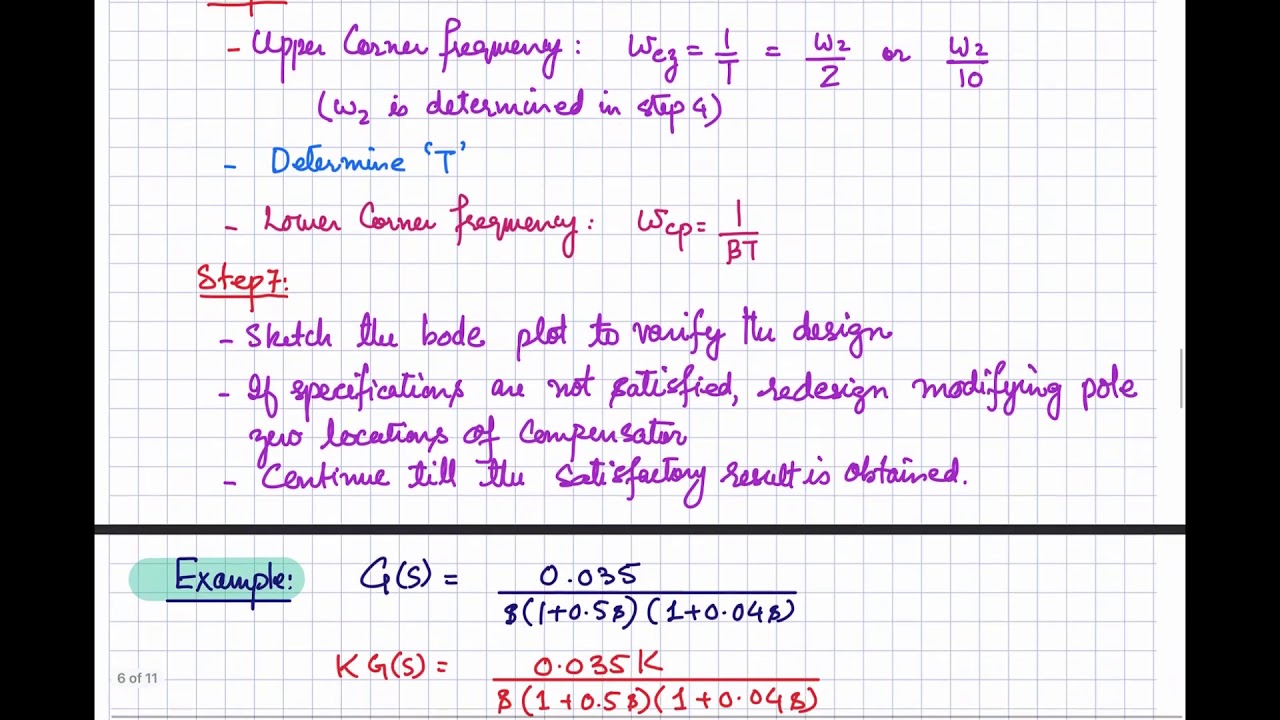 - Upper Corner frequency: Wcz = 1/T = ω2/2 or ω2/10
(ω2 is determined in step 4)
- Determine ‘T’
- Lower Corner frequency: Wcp = 1/βT
Step7:
- Sketch the bode plot to varify the design
- If specifications are not satisfied, redesign modifying pole
zero locations of compensator
- Continue till the satisfactory result is obtained.
Example: G(s) = 0.035 / s(1+0.5s)(1+0.04s)
KG(s) = 0.035K / s(1+0.5s)(1+0.04s)
6 of 11